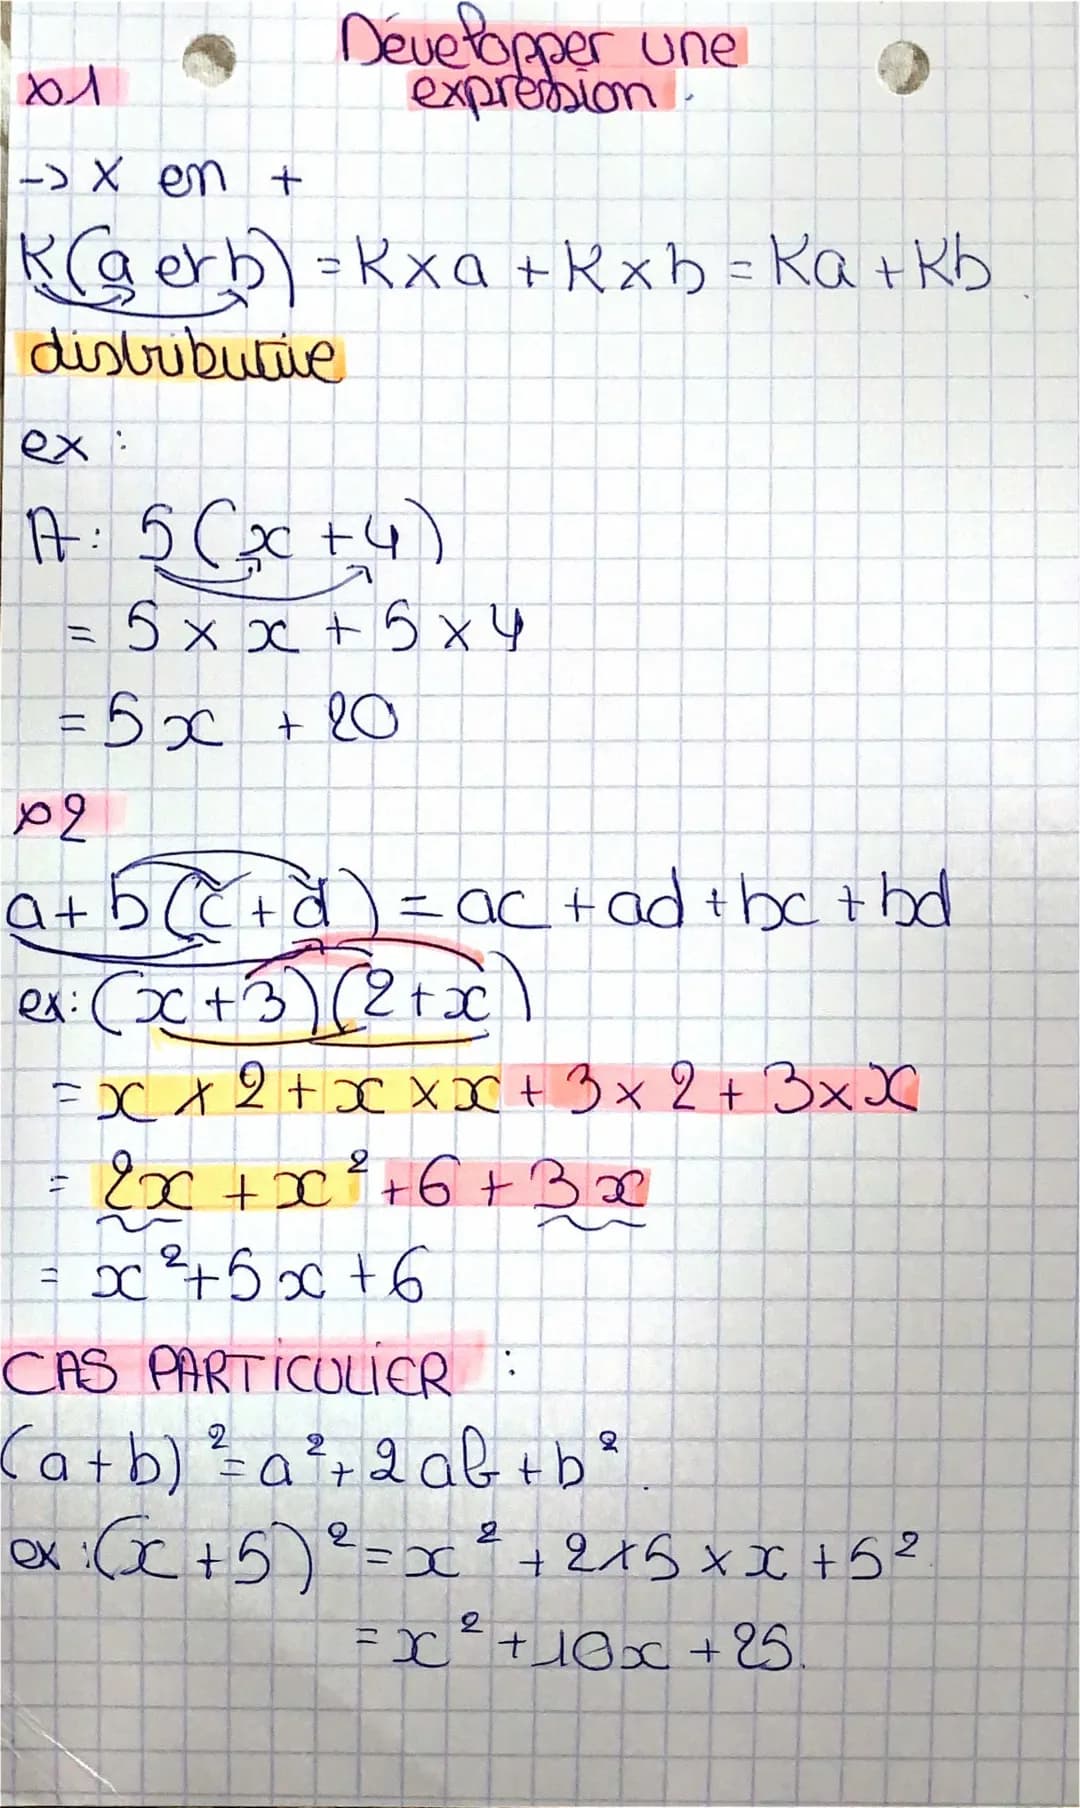 Développer une
expression.
×1
-> × en +
K(a et b) = K×a + K×b = Ka + Kb
distributive
ex :
A: 5(x + 4)
= 5 × x + 5 × 4
= 5x + 20
×2
a + b(c + d) = ac + ad + bc + bd
ex: (x + 3)(2 + x)
= x × 2 + x × x + 3 × 2 + 3 × x
= 2x + x² + 6 + 3x
= x² + 5x + 6
CAS PARTICULIER :
(a + b)² = a² + 2ab + b².
ex :(x + 5)² = x² + 2×5 × x + 5²
= x² + 10x + 25.